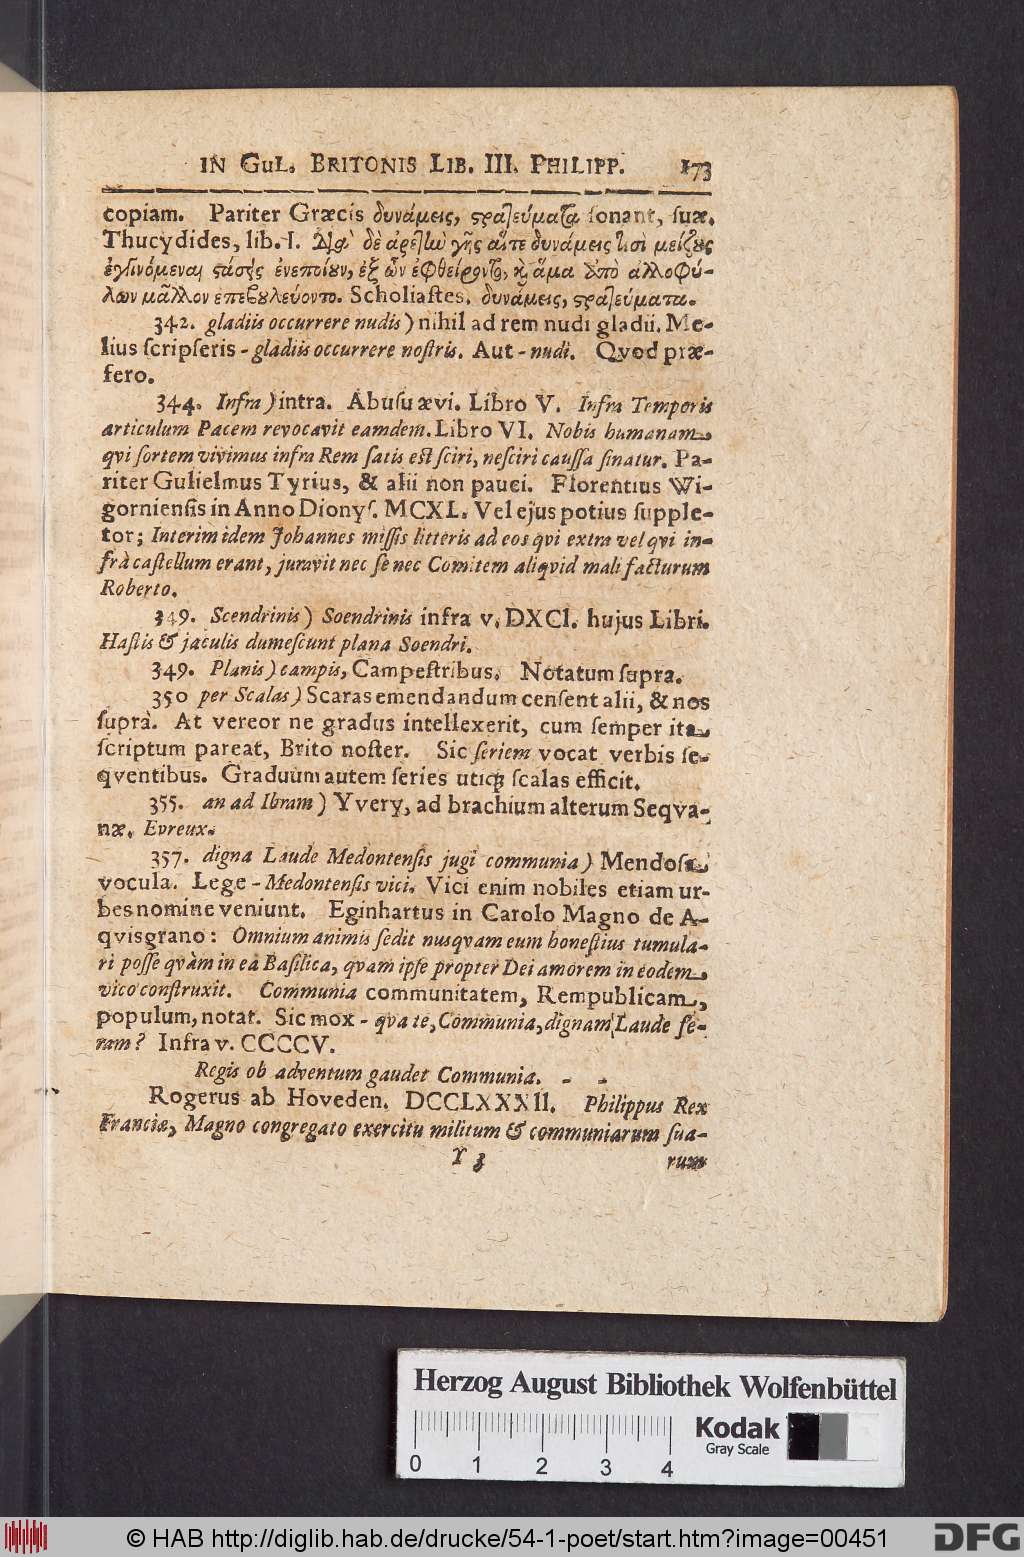 IN GuL. BRITONIS LIB. III. PHILIPP. 173
copiam. Pariter Græcis δυνάμεις, ςρατεύματα ſonant, ſuæ.
Thucydides, lib. I. Διὰ δὲ ἀρετὴν γῆς αἵτε δυνάμεις τισὶ μείζους
ἐγγινόμεναι ςάσεις ἐνεποίουν, ἐξ ὧν ἐφθείροντο, καὶ ἅμα ὑπὸ ἀλλοφύ-
λων μᾶλλον ἐπεβουλεύοντο. Scholiaſtes. δυνάμεις, ςρατεύματα.
342. gladiis occurrere nudis) nihil ad rem nudi gladii. Me-
lius ſcripſeris - gladiis occurrere noſtris. Aut - nudi. Qvod præ-
fero.
344. Infra) intra. Abuſu ævi. Libro V. Infra Temporis
articulum Pacem revocavit eamdem. Libro VI. Nobis humanam
qvi ſortem vivimus infra Rem ſatis eſt ſciri, neſciri cauſſa ſinatur. Pa-
riter Gulielmus Tyrius, & alii non pauci. Florentius Wi-
gornienſis in Anno Dionyſ. MCXL. Vel ejus potius ſupple-
tor; Interim idem Johannes miſſis litteris ad eos qvi extra vel qvi in-
frà caſtellum erant, juravit nec ſe nec Comitem aliqvid mali facturum
Roberto.
349. Scendrinis) Soendrinis infra v. DXCI. hujus Libri.
Haſtis & jaculis dumeſcunt plana Soendri.
349. Planis) campis, Campeſtribus. Notatum ſupra.
350 per Scalas) Scaras emendandum cenſent alii, & nos
ſuprà. At vereor ne gradus intellexerit, cum ſemper ita
ſcriptum pareat, Brito noſter. Sic ſeriem vocat verbis ſe-
qventibus. Graduum autem ſeries utiqꝫ ſcalas efficit.
355. an ad Ibram) Yvery, ad brachium alterum Seqva-
næ. Evreux.
357. digna Laude Medontenſis jugi communia) Mendoſa
vocula. Lege - Medontenſis vici. Vici enim nobiles etiam ur-
bes nomine veniunt. Eginhartus in Carolo Magno de A-
qvisgrano: Omnium animis ſedit nusqvam eum honeſtius tumula-
ri poſſe qvàm in eâ Baſilica, qvam ipſe propter Dei amorem in eodem
vico conſtruxit. Communia communitatem, Rempublicam,
populum, notat. Sic mox - qva te, Communia, dignam Laude fe-
ram? Infra v. CCCCV.
Regis ob adventum gaudet Communia. - -
Rogerus ab Hoveden. DCCLXXXII. Philippus Rex
Franciæ, Magno congregato exercitu militum & communiarum ſua-
Y 3 rum
Herzog August Bibliothek Wolfenbüttel
Kodak
Gray Scale
0 1 2 3 4
© HAB http://diglib.hab.de/drucke/54-1-poet/start.htm?image=00451
DFG